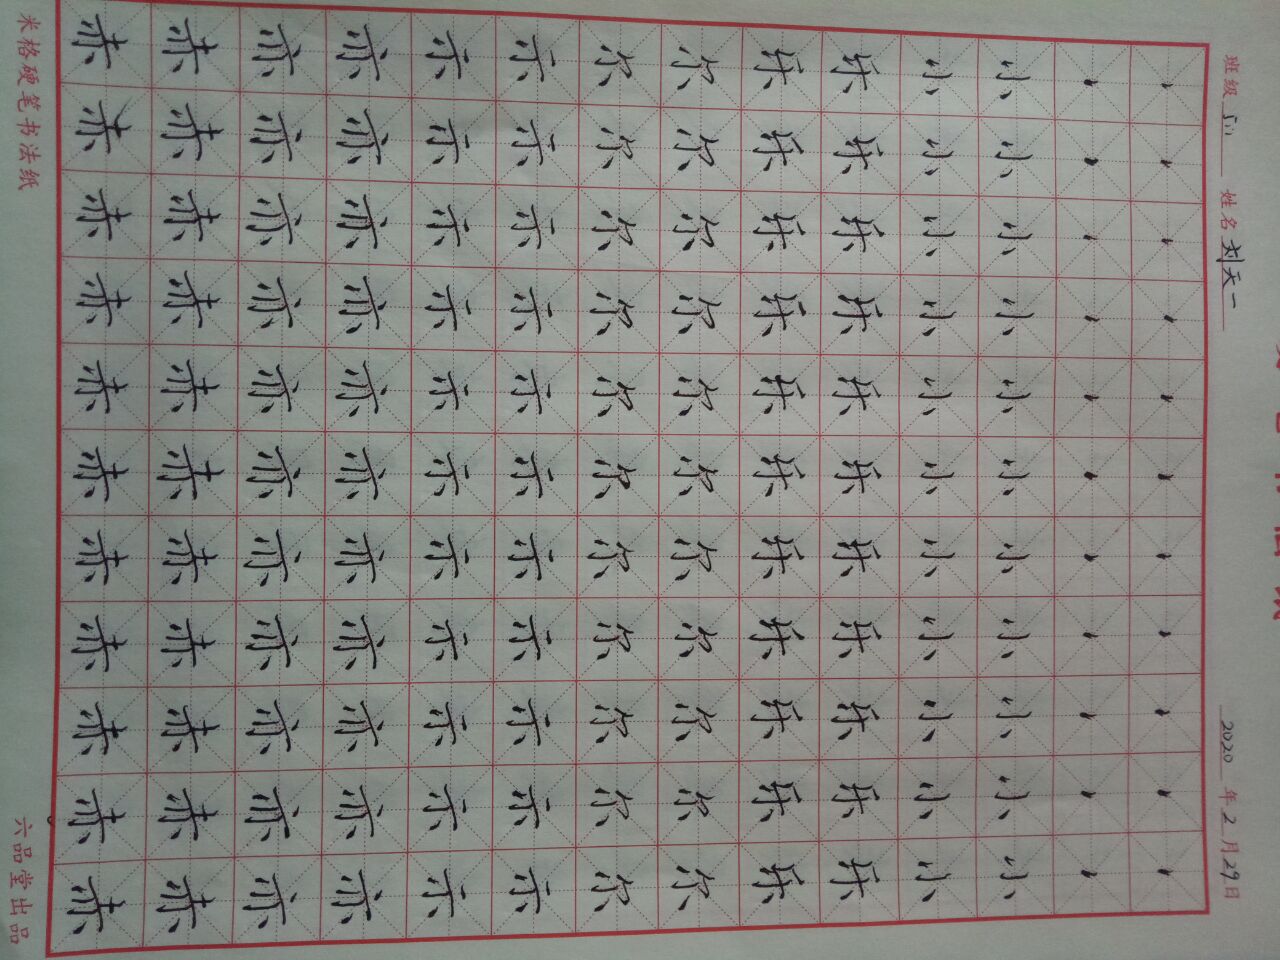 班级 511 姓名 刘天一 2020 年 2 月 29 日
丶丶丶丶丶丶丶丶丶丶丶
丶丶丶丶丶丶丶丶丶丶丶
小小小小小小小小小小小
小小小小小小小小小小小
乐乐乐乐乐乐乐乐乐乐乐
乐乐乐乐乐乐乐乐乐乐乐
尔尔尔尔尔尔尔尔尔尔尔
尔尔尔尔尔尔尔尔尔尔尔
示示示示示示示示示示示
示示示示示示示示示示示
亦亦亦亦亦亦亦亦亦亦亦
亦亦亦亦亦亦亦亦亦亦亦
赤赤赤赤赤赤赤赤赤赤赤
赤赤赤赤赤赤赤赤赤赤赤
米格硬笔书法纸 六品堂出品